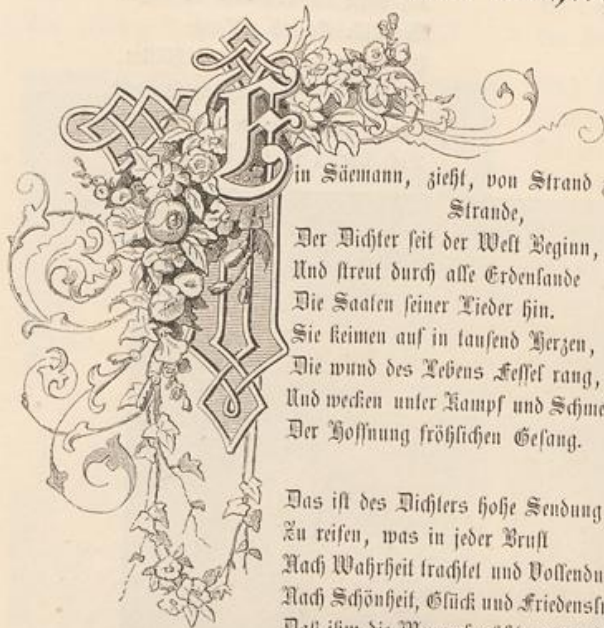 Ein Säemann, zieht, von Strand
Strande,
Der Dichter seit der Welt Beginn,
Und streut durch alle Erdenlande
Die Saaten seiner Lieder hin.
Sie keimen auf in tausend Herzen,
Die wund des Lebens Fessel rang,
Und wecken unter Kampf und Schme
Der Hoffnung fröhlichen Gesang.
Das ist des Dichters hohe Sendung
Zu reifen, was in jeder Brust
Nach Wahrheit trachtet und Vollendu
Nach Schönheit, Glück und Friedensl